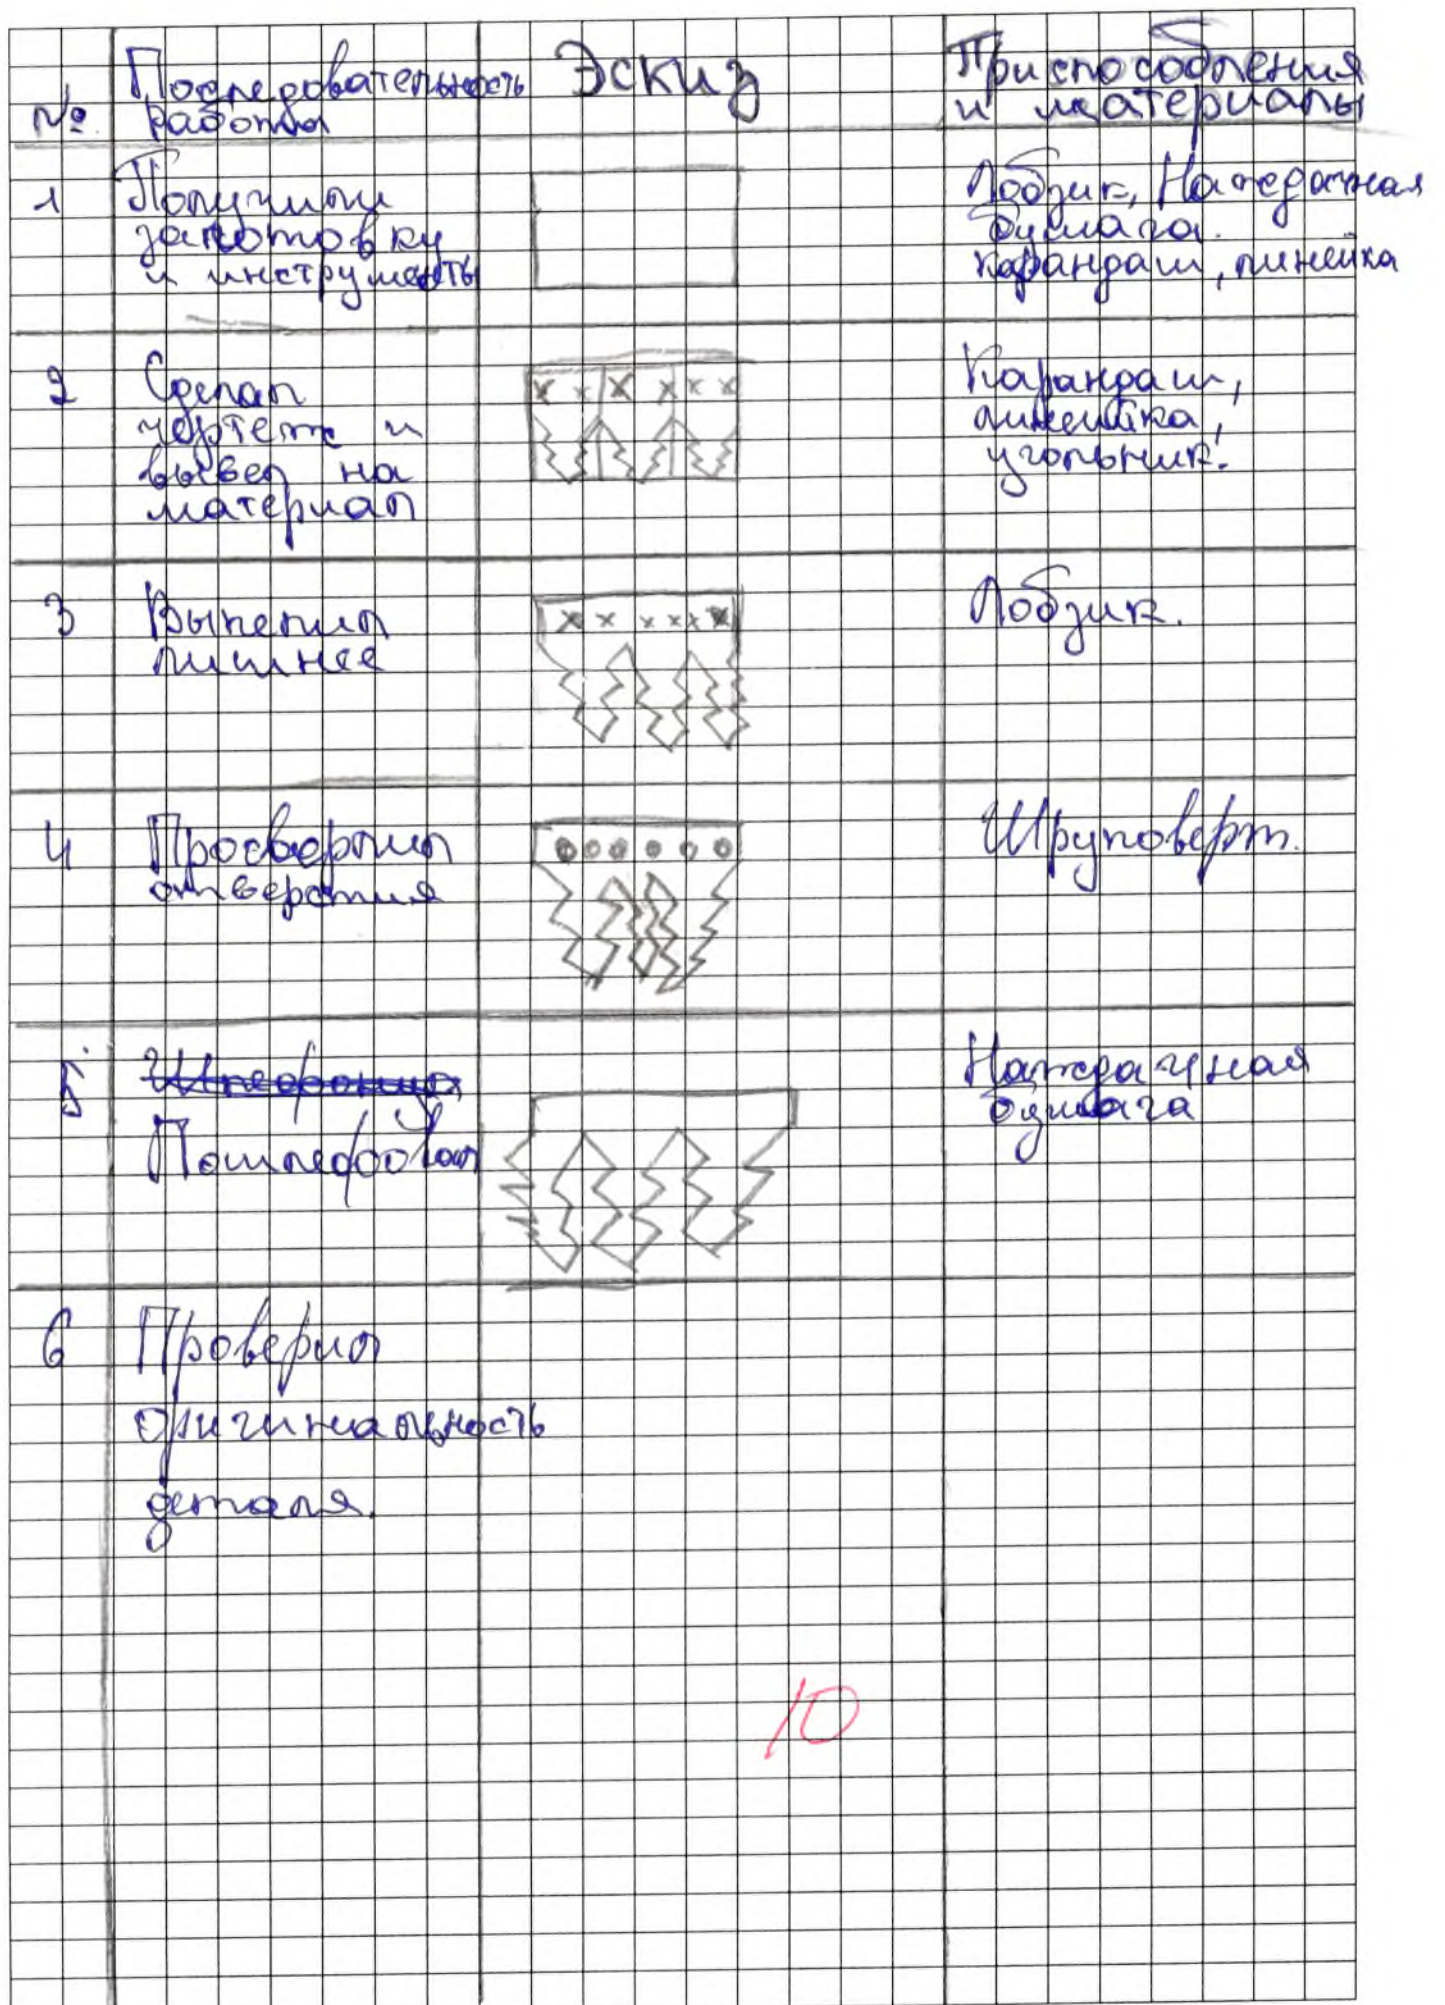 №
Последовательность
работы
Эскиз
Приспособления
и материалы
1
Получили
заготовку
и инструменты
Лобзик, Наждачная
бумага.
карандаш, линейка
2
Сделал
чертеж и
вывел на
материал
Карандаш,
линейка,
угольник.
3
Выпелил
лишнее
Лобзик.
4
Просверлил
отверстия
Шруповерт.
5
Пошлефовал
Наждачная
бумага
6
Проверил
оригинальность
деталя.
10